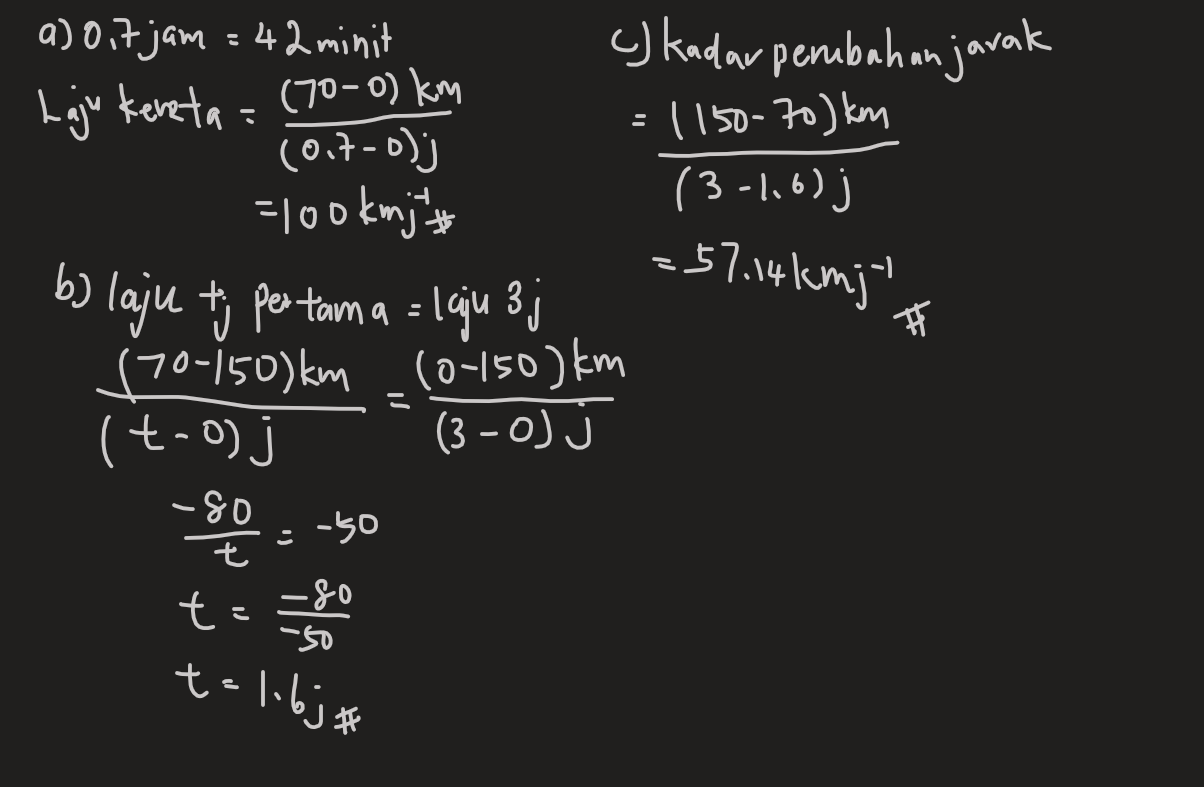 a) 0.7jam = 42minit
Laju kereta = (70-0)km / (0.7-0)j
=100kmj⁻¹#
b) laju tj pertama = laju 3j
(70-150)km / (t-0)j = (0-150)km / (3-0)j
-80 / t = -50
t = -80 / -50
t = 1.6j#
c) kadar perubahan jarak
= (150-70)km / (3-1.6)j
= 57.14kmj⁻¹#